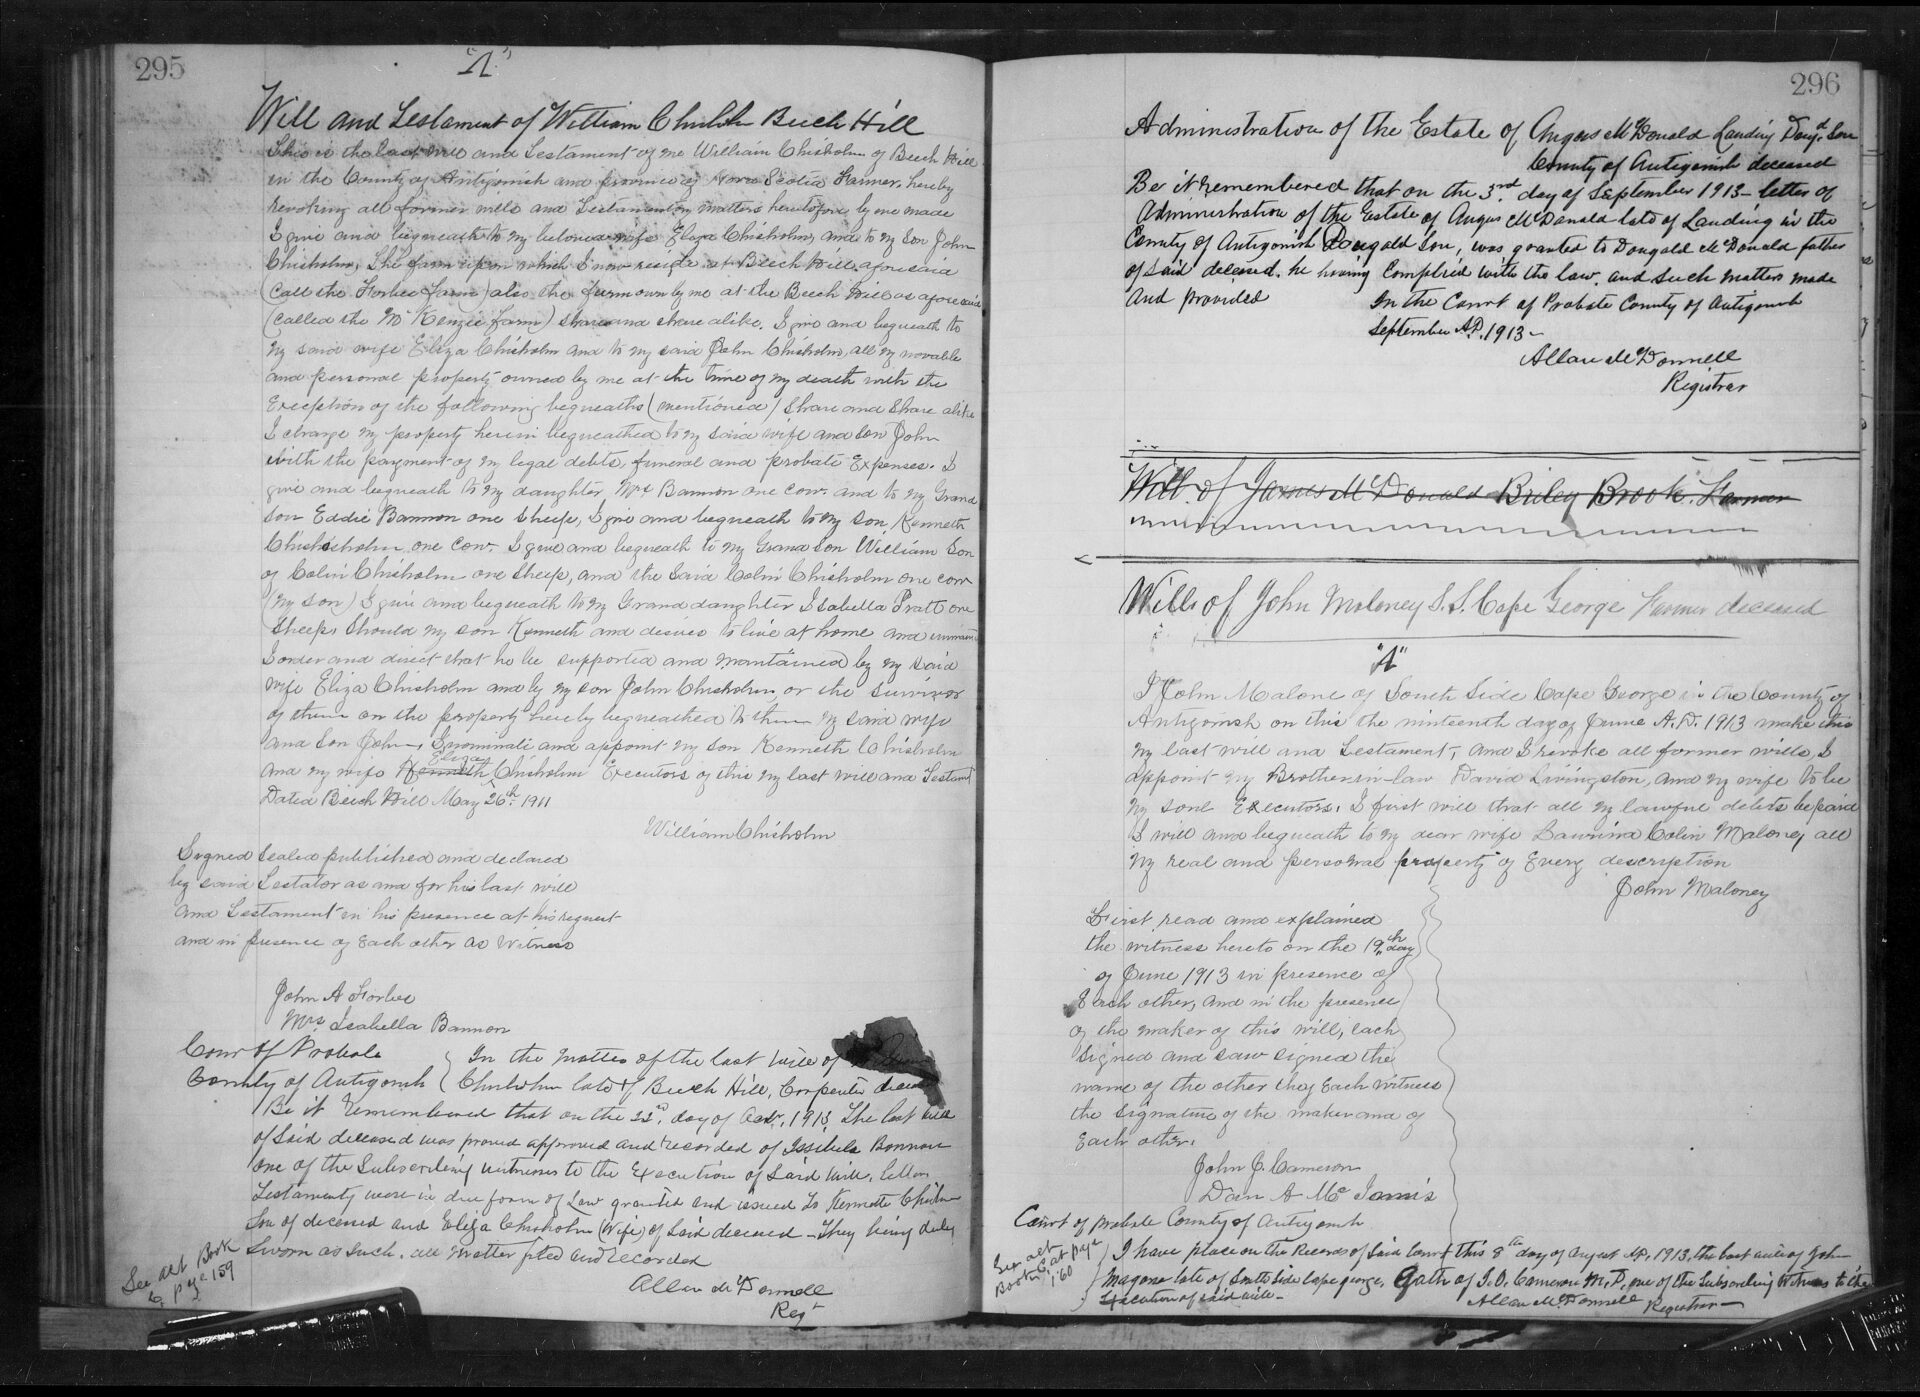 295
"A"
Will and Testament of William Chisholm Beech Hill
This is the last will and Testament of me William Chisholm of Beech Hill
in the County of Antigonish and province of Nova Scotia Farmer, hereby
revoking all former wills and Testamentary matters heretofore by me made
I give and bequeath to my beloved wife Eliza Chisholm, and to my son John
Chisholm, The farm upon which I now reside at Beech Hill aforesaid
(call the Forbes farm) also the farm own by me at the Beech Hill as aforesaid
(called the McKenzie farm) share and share alike. I give and bequeath to
my said wife Eliza Chisholm and to my said John Chisholm, all my movable
and personal property owned by me at the time of my death with the
Exception of the following bequeaths (mentioned) Share and Share alike
I charge my property herein bequeathed to my said wife and son John
with the payment of my legal debts, funeral and probate Expenses. I
give and bequeath to my daughter Mrs Bannon one cow and to my Grand
son Eddie Bannon one Sheep, I give and bequeath to my son Kenneth
Chishisholm one cow. I give and bequeath to my Grand son William Son
of Colin Chisholm one Sheep, and the Said Colin Chisholm one cow
(my son) I give and bequeath to my Grand daughter Isabella Pratt one
Sheep, Should my son Kenneth and desires to live at home and
I order and direct that he be supported and mantained by my said
wife Eliza Chisholm and by my son John Chisholm, or the Survivor
of them on the property hereby bequeathed to them my said wife
and son John, I nominate and appoint my son Kenneth Chisholm
Eliza
and my wife Kenneth Chisholm Executors of this my last will and Testamt
Dated Beech Hill May 26th 1911
William Chisholm
Signed Sealed published and declared
by said Testator as and for his last will
and Testament in his presence at his request
and in presence of Each other as Witness
John A Forbes
Mrs Isabella Bannon
Court of Probate
County of Antigonish
In the matter of the last will of
Chisholm late of Beech Hill, Carpenter deceased
Be it remembered that on the 22nd day of Octr. 1913, The last will
of Said deceased was proved approved and recorded of Issibela Bonnon
one of the Subscribing witnesses to the Execution of Said Will, letters
Testamenty were in due form of Law granted and issued to Kennett Chisholm
Son of deceased and Eliza Chisholm (Wife) of Said deceased - They being duly
Sworn as Such. all matter filed and recorded
Allan McDonnell
Regt
See act Book
6 page 159
296
Administration of the Estate of Angus McDonald Landing Dougd Son
County of Antigonish deceased
Be it remembered that on the 3rd day of September 1913 - letter of
Administration of the Estate of Angus McDonald late of Landing in the
County of Antigonish Dougald Son, was granted to Dougald McDonald father
of said deceased. he having Complied with the law. and such matters made
and provided
In the Court of Probate County of Antigonish
September A.D. 1913 -
Allan McDonnell
Registrar
Will of James McDonald Briley Brook. Farmer
Will of John Maloney S. S. Cape George Farmer deceased
"A"
I John Malone of South Side Cape George in the County of
Antigonish on this the ninteenth day of June A.D. 1913 make this
my last will and Testament, and I revoke all former wills, I
appoint my Brother-in-law David Livingston, and my wife to be
my sole Executors. I first will that all my lawful debts be paid
I will and bequeath to my dear wife Colin Maloney all
my real and personal property of Every description
John Maloney
First read and explained
the witness hereto on the 19th day
of June 1913 in presence of
Each other, and in the presence
of the maker of this will, each
signed and saw signed the
name of the other they Each witness
the signature of the maker and of
Each other.
John J. Cameron
Dan A Mc Innis
Court of probate County of Antigonish
See act
Book 6 at page
160
I have place on the Records of Said Court this 8th day of August AD, 1913, the last will of John
Magone late of South Side Cape george, Oath of J. J. Cameron M, D, one of the Subscribing Witness to the
Execution of said will -
Allan McDonnell Registrar